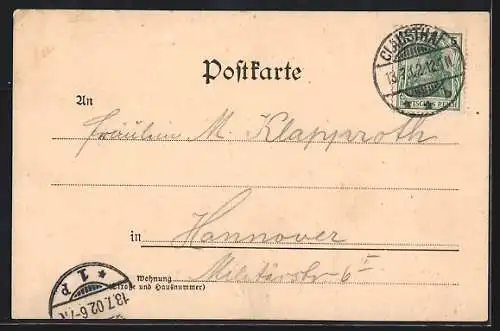 CLAUSTHAL
13.7.02.12-1N
DEUTSCHES REICH
Postkarte
An
Fräulein M. Klapproth
in Hannover
Wohnung
(Straße und Hausnummer)
Militärstr. 6 I
* 1 P
13.7.02.6-7.N